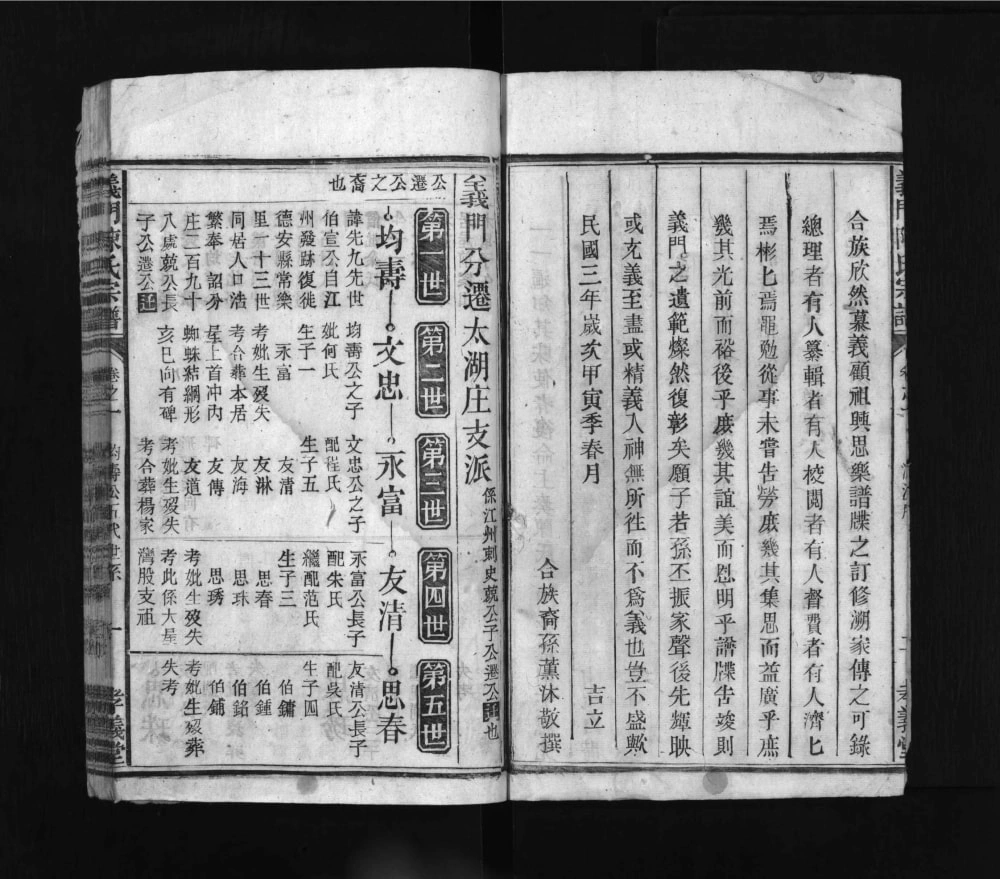 合族欣然慕義顧祖興思樂譜牒之訂修溯家傳之可錄
總理者有人纂輯者有人校閱者有人督費者有人濟匕
焉彬匕焉黽勉從事未嘗告勞庶幾其集思而益廣乎庶
幾其光前而裕後乎庶幾其誼美而恩明乎譜牒告竣則
義門之遺範燦然復彰矣願子若孫丕振家聲後先輝映
或充義至盡或精義入神無所往而不為義也豈不盛歟
民國三年歲次甲寅季春月
吉立
合族裔孫薰沐敬撰
義門分遷太湖庄支派
係江州刺史兢公子公遷公迁也
公遷公之裔也
第一世
第二世
第三世
第四世
第五世
均壽
文忠
永富
友清
思春
諱先九先世
伯宣公自江
州發跡復徙
德安縣常樂
里十三世
同居人口浩
繁奉 詔分
庄二百九十
八處兢公長
子公遷公迁
均壽公之子
妣何氏
生子一
永富
考妣生歿失
考合葬本居
屋上首冲內
蜘蛛結網形
亥巳向有碑
文忠公之子
配程氏
生子五
友清
友淋
友海
友傳
友道
考妣生歿失
考合葬楊家
永富公長子
配朱氏
繼配范氏
生子三
思春
思珠
思琇
考妣生歿失
考此係大屋
灣股支祖
友清公長子
配吳氏
生子四
伯鏞
伯鍾
伯銘
伯鋪
考妣生歿葬
失考
義門陳氏宗譜
卷之一
均壽公五代世系
一
孝義堂